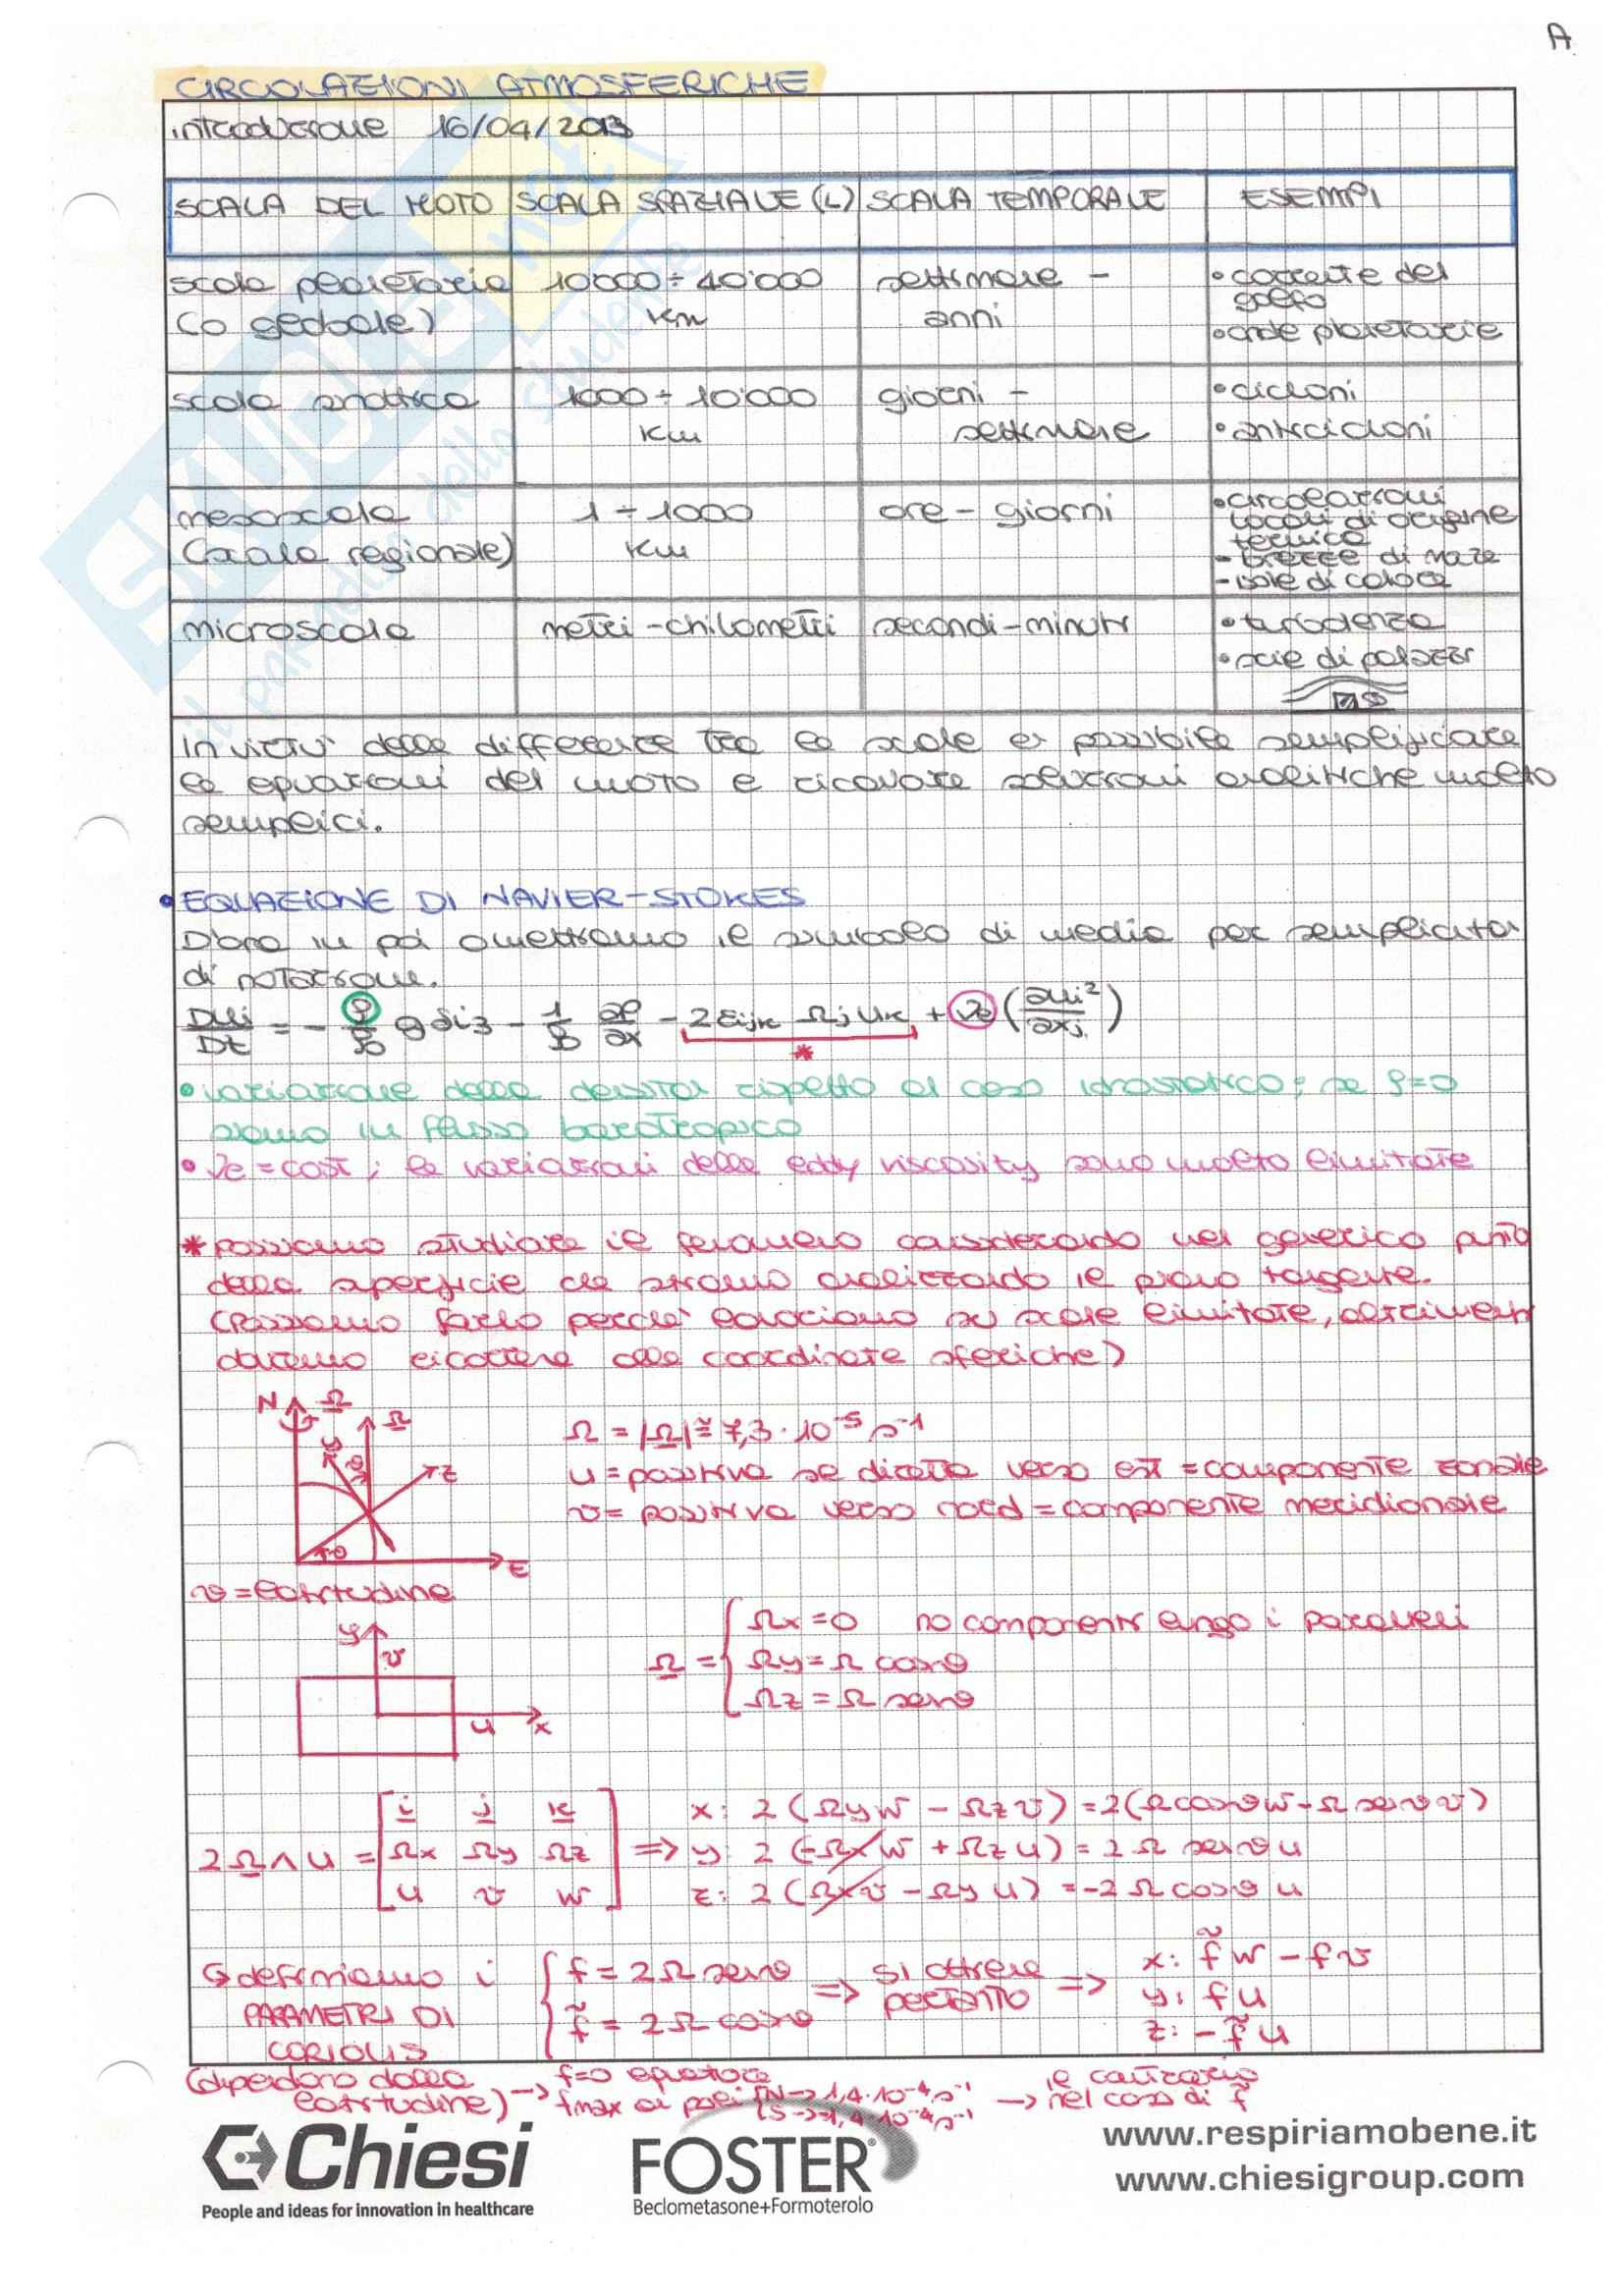 A
CIRCOLAZIONI ATMOSFERICHE
introduzione 16/04/2013
SCALA DEL MOTO | SCALA SPAZIALE (L) | SCALA TEMPORALE | ESEMPI
scala planetaria (o globale) | 10'000 ÷ 40'000 km | settimane - anni | • corrente del golfo • onde planetarie
scala sinottica | 1000 ÷ 10'000 km | giorni - settimane | • cicloni • anticicloni
mesoscala (scala regionale) | 1 ÷ 1000 km | ore - giorni | • circolazioni locali di origine termica - brezze di mare - isole di calore
microscala | metri - chilometri | secondi - minuti | • turbolenza • scie di palazzi
In virtù delle differenze tra le scale è possibile semplificare
le equazioni del moto e ricavare soluzioni analitiche molto
semplici.
• EQUAZIONE DI NAVIER-STOKES
D'ora in poi omettiamo il simbolo di media per semplicità
di notazione.
DUi/Dt = - ρ/ρ0 g δi3 - 1/ρ0 ∂P/∂x - 2εijk Ωj Uk + νe (∂Ui²/∂xj)
*
• variazione della densità rispetto al caso idrostatico; se ρ=0
siamo in flusso barotropico
• νe = cost; le variazioni della eddy viscosity sono molto limitate
* Possiamo studiare il fenomeno considerando nel generico punto
della superficie che stiamo analizzando il piano tangente.
(Possiamo farlo perché lavoriamo su scale limitate, altrimenti
dovremo ricorrere alle coordinate sferiche)
N Ω Ω y ϑ z ϑ E
Ω = |Ω| ≅ 7,3 · 10⁻⁵ s⁻¹
u = positiva se diretta verso est = componente zonale
v = positiva verso nord = componente meridionale
ϑ = latitudine
y v u x
Ω = { Ωx = 0 no componenti lungo i paralleli
Ωy = Ω cosϑ
Ωz = Ω senϑ
2Ω ∧ u = [ i j k
Ωx Ωy Ωz
u v w ]
⇒ x: 2 (Ωy w - Ωz v) = 2(Ω cosϑ w - Ω senϑ v)
y: 2 (-Ωx w + Ωz u) = 2 Ω senϑ u
z: 2 (Ωx v - Ωy u) = -2 Ω cosϑ u
↳ definiamo i PARAMETRI DI CORIOLIS
{ f = 2Ω senϑ
f̃ = 2Ω cosϑ
⇒ si ottiene pertanto ⇒
x: f̃ w - f v
y: f u
z: - f̃ u
(dipendono dalla latitudine) → f=0 equatore
fmax ai poli { N → 1,4·10⁻⁴ s⁻¹
S → -1,4·10⁻⁴ s⁻¹
→ il contrario nel caso di f̃
Chiesi
People and ideas for innovation in healthcare
FOSTER®
Beclometasone+Formoterolo
www.respiriamobene.it
www.chiesigroup.com
SKUOLA.net
il paradiso dello studente